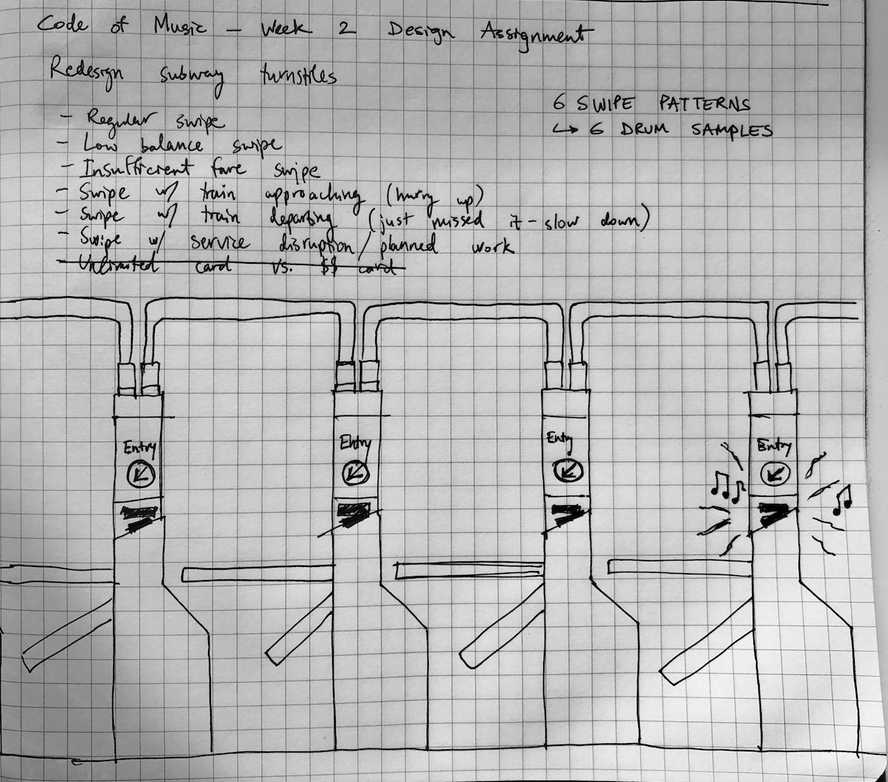 Code of Music – Week 2 Design Assignment
Redesign subway turnstiles
– Regular swipe
– Low balance swipe
– Insufficient fare swipe
– Swipe w/ train approaching (hurry up)
– Swipe w/ train departing (just missed it – slow down)
– Swipe w/ service disruption / planned work
– Unlimited card vs. $$ card
6 SWIPE PATTERNS
↳ 6 DRUM SAMPLES
Entry
Entry
Entry
Entry